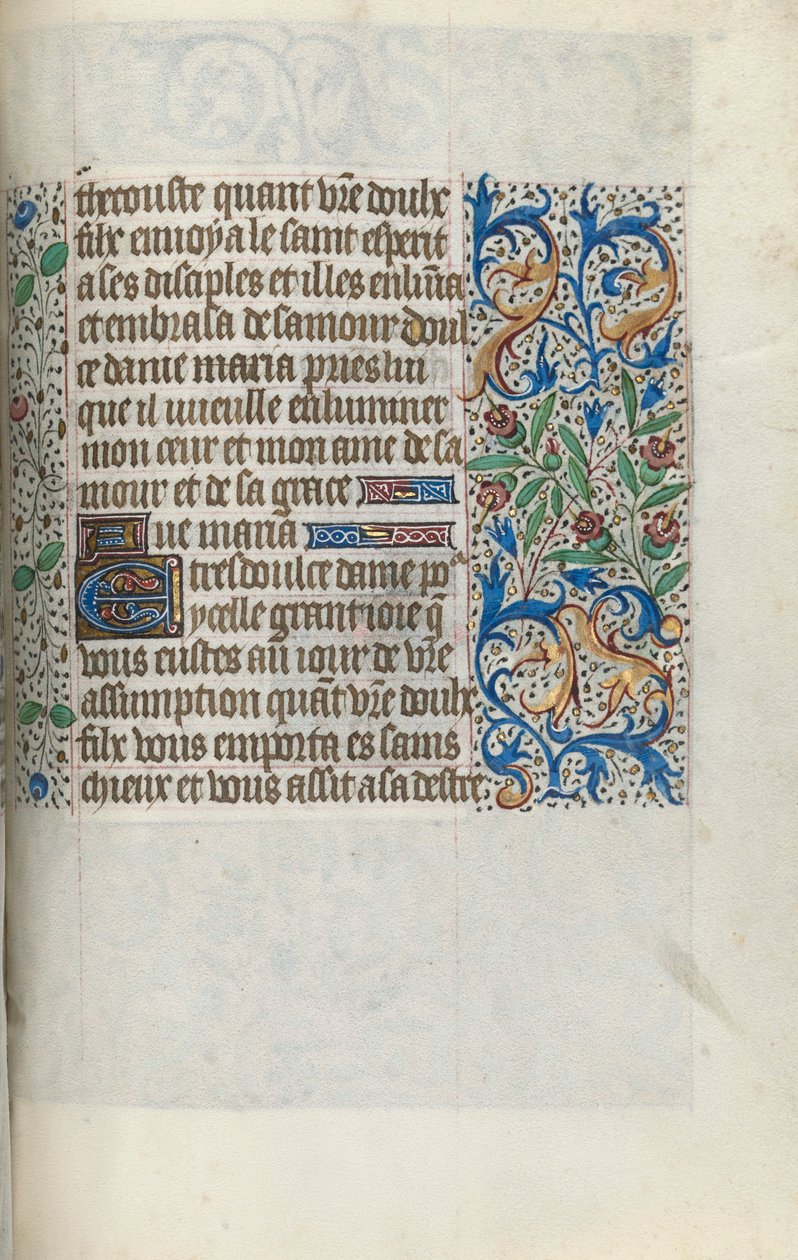 thecouste quant vr̄e doulx
filx enuoya le saint esperit
a ses disciples et illes enlūīa
et embrasa de samour doul
ce dame maria pries lun
que il uueille enluminer
mon ceur et mon ame de sa
mour et de sa grace
Aue maria
E tresdoulce dame po^r
ycelle grant ioie q̄
vous eustes au iour de vr̄e
assumption quāt vr̄e doulx
filx vous emporta es sains
chieux et vous assit a sa destre